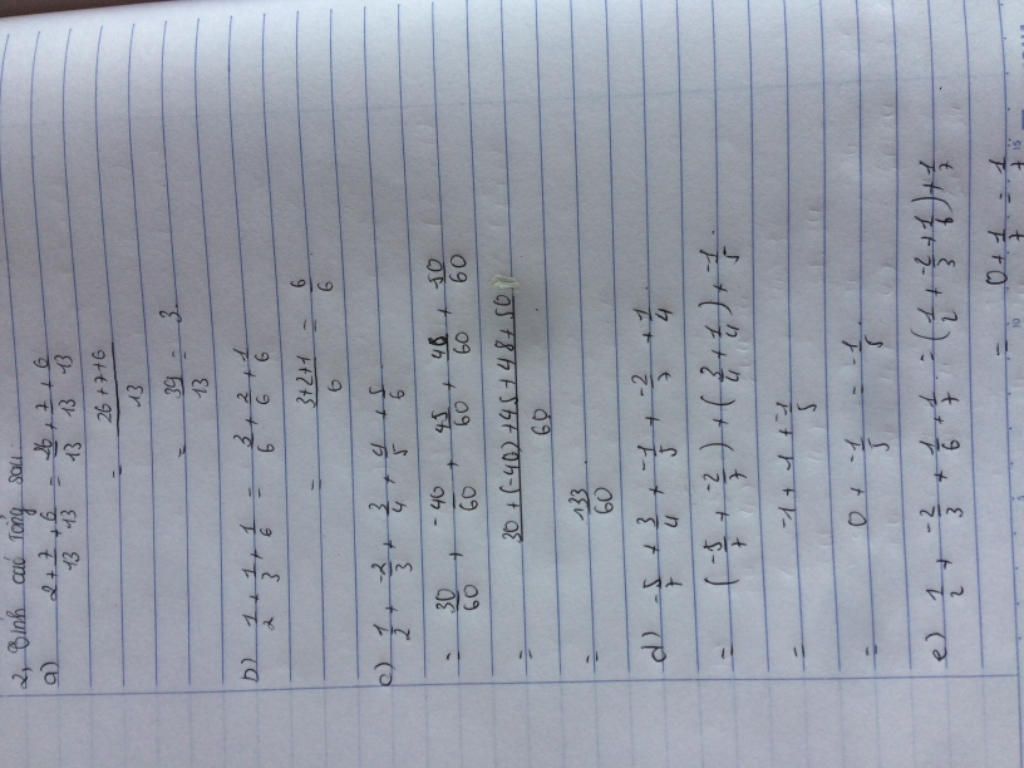 2, Tính các tổng sau
a) 2 + 7/13 + 6/13 = 26/13 + 7/13 + 6/13
= (26+7+6)/13
= 39/13 = 3.
b) 1/2 + 1/3 + 1/6 = 3/6 + 2/6 + 1/6
= (3+2+1)/6 = 6/6
c) 1/2 + -2/3 + 3/4 + 4/5 + 5/6
= 30/60 + -40/60 + 45/60 + 48/60 + 50/60
= (30+(-40)+45+48+50)/60
= 133/60
d) -5/7 + 3/4 + -1/5 + -2/7 + 1/4
= (-5/7 + -2/7) + (3/4 + 1/4) + -1/5
= -1 + 1 + -1/5
= 0 + -1/5 = -1/5
e) 1/2 + -2/3 + 1/6 + 1/7 = (1/2 + -2/3 + 1/6) + 1/7
= 0 + 1/7 = 1/7